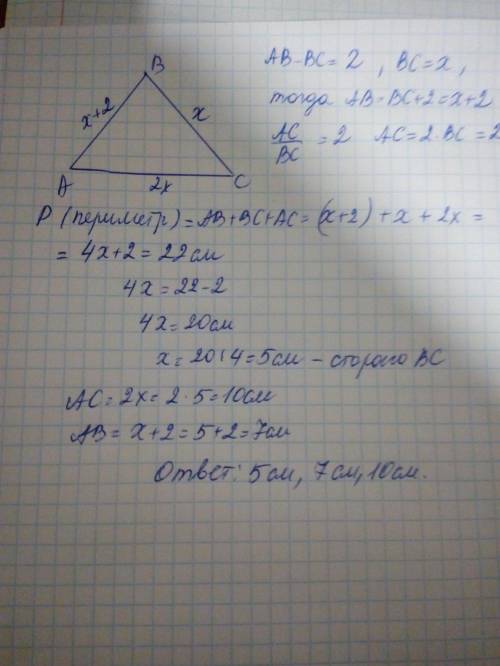 B
x+2
x
A
2x
C
AB-BC=2 , BC=x,
тогда AB=BC+2=x+2
AC/BC = 2 AC=2·BC=2
P (периметр)=AB+BC+AC=(x+2)+x+2x=
= 4x+2=22см
4x=22-2
4x=20см
x=20:4=5см – сторона BC
AC=2x=2·5=10см
AB= x+2=5+2=7см
Ответ: 5см, 7см, 10см.